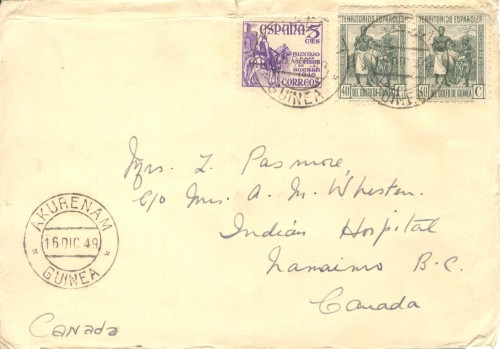 ESPAÑA 5
CTS
AUXILIO
A LAS
VICTIMAS
DE LA
GUERRA
1946
CORREOS
TERRITORIOS ESPAÑOLES
40 DEL GOLFO DE GUINEA C
TERRITORIOS ESPAÑOLES
40 DEL GOLFO DE GUINEA C
GUINEA
Mrs. L. Pasmore
c/o Mrs. A. M. Wheston.
Indian Hospital
Nanaimo B.C.
Canada
AKURENAM
16 DIC 49
GUINEA
Canada